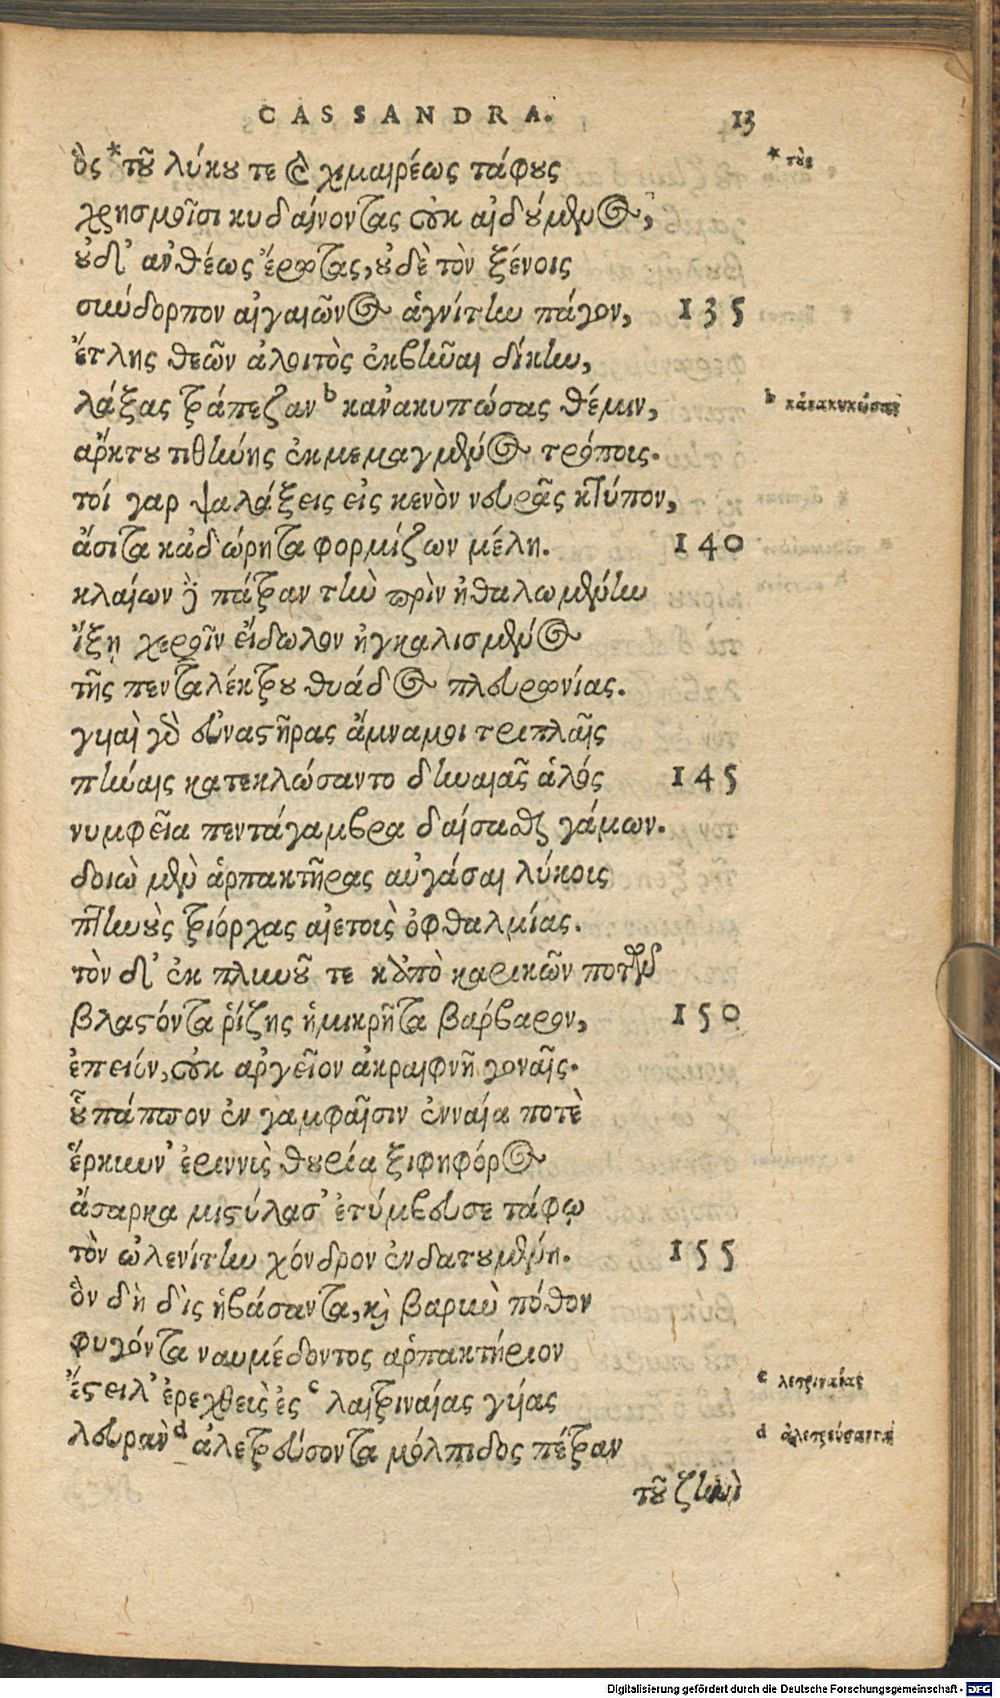 CASSANDRA. 13
ὃς * τοῦ λύκου τε καὶ χιμαιρέως τάφους * τοὺς
χρησμοῖσι κυδαίνοντας οὐκ αἰδούμενος,
οὐδ' ἀνθέως ἔρωτας, οὐδὲ τὸν ξένοις
σύνδορπον αἰγαίωνος ἁγνίτην πάγον, 135
ἔτλης θεῶν ἀλοιτὸς ἐκβῆναι δίκην,
λάξας τράπεζαν b κἀνακυπώσας θέμιν, b κἀνακυκώσας
ἄρκτου τιθήνης ἐκμεμαγμένος τρόποις.
τοὶ γαρ ψαλάξεις εἰς κενὸν νευρᾶς κτύπον,
ἄσιτα κἀδώρητα φορμίζων μέλη. 140
κλαίων δὲ πάτραν τὴν πρὶν ᾐθαλωμένην
ἵξῃ χεροῖν εἴδωλον ἠγκαλισμένος
τῆς πενταλέκτρου θυάδος πλευρωνίας.
γυιαὶ γὰρ εὐναστῆρας ἄμναμοι τριπλαῖς
πήναις κατεκλώσαντο δηναιᾶς ἁλός 145
νυμφεῖα πεντάγαμβρα δαίσασθαι γάμων.
δοιὼ μὲν ἁρπακτῆρας αὐγάσαι λύκοις
πτηνοὺς τριόρχας αἰετοὶς ὀφθαλμίας.
τὸν δ' ἐκ πλυνοῦ τε κἀπὸ καρικῶν ποτῶν
βλαστόντα ῥίζης ἡμικρῆτα βάρβαρον, 150
ἐπειόν, οὐκ ἀργεῖον ἀκραιφνῆ γοναῖς.
οὗ πάππον ἐν γαμφαῖσιν ἐνναία ποτὲ
ἕρκυνν' ἐριννὶς θυρία ξιφηφόρος
ἄσαρκα μιστύλασ' ἐτύμβευσε τάφῳ
τὸν ὠλενίτην χόνδρον ἐνδατουμένη. 155
ὃν δὴ δὶς ἡβάσαντα, καὶ βαρὺν πόθον
φυγόντα ναυμέδοντος ἁρπακτήριον
ἔστειλ' ἐρεχθεὶς ἐς c λατριναίας γύας c λετριναίας
λευρὰν d ἀλετρεύσοντα μόλπιδος πέτραν d ἀλετρεύσαντα
τοῦ ζηνὶ
Digitalisierung gefördert durch die Deutsche Forschungsgemeinschaft - DFG